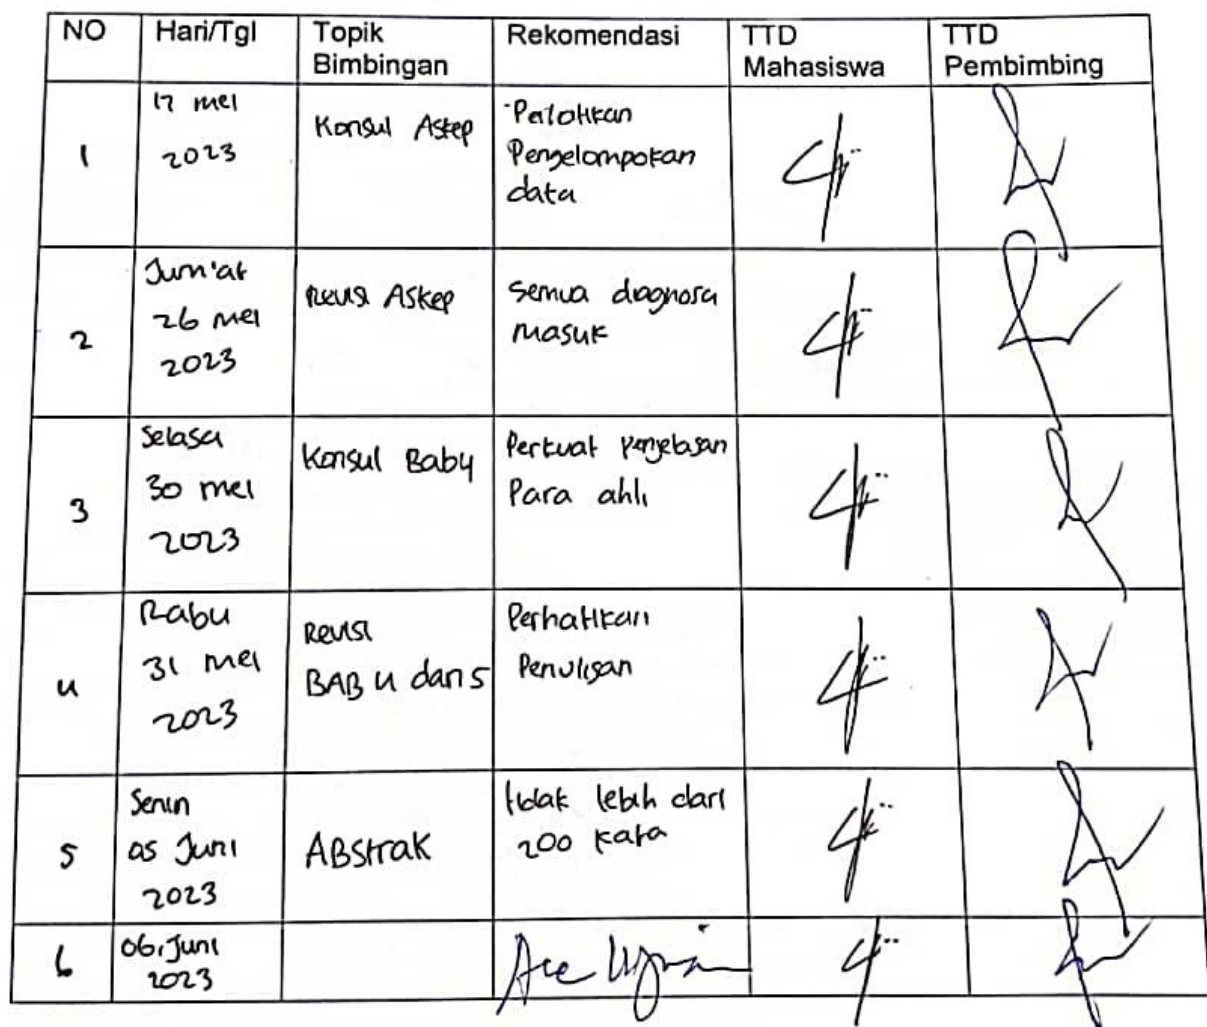 NO Hari/Tgl Topik Bimbingan Rekomendasi TTD Mahasiswa TTD Pembimbing
1
17 mei
2023
Konsul Askep
Perhatikan
Pengelompokan
data
2
Jum'at
26 mei
2023
Revisi Askep
Semua diagnosa
masuk
3
Selasa
30 mei
2023
Konsul Bab4
Perkuat penjelasan
Para ahli
4
Rabu
31 mei
2023
Revisi
BAB 4 dan 5
Perhatikan
Penulisan
5
Senin
05 Juni
2023
ABStrak
tidak lebih dari
200 kata
6
06, Juni
2023
Acc Ujian